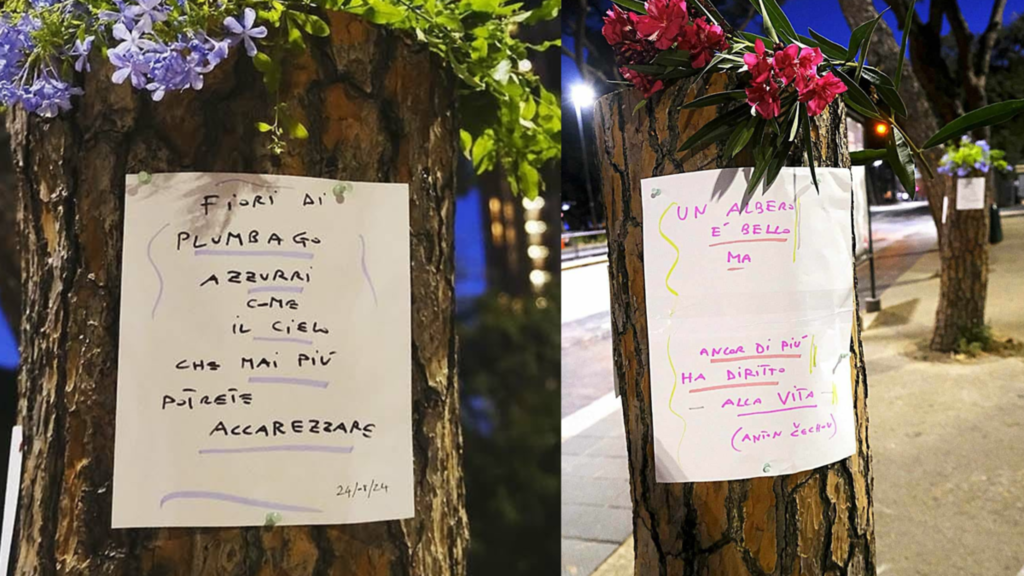 FIORI DI
PLUMBAGO
AZZURRI
COME
IL CIELO
CHE MAI PIÚ
POTRETE
ACCAREZZARE
24/8/24
UN ALBERO
E' BELLO
MA
ANCOR DI PIÚ
HA DIRITTO
ALLA VITA
(ANTON ČECHOV)